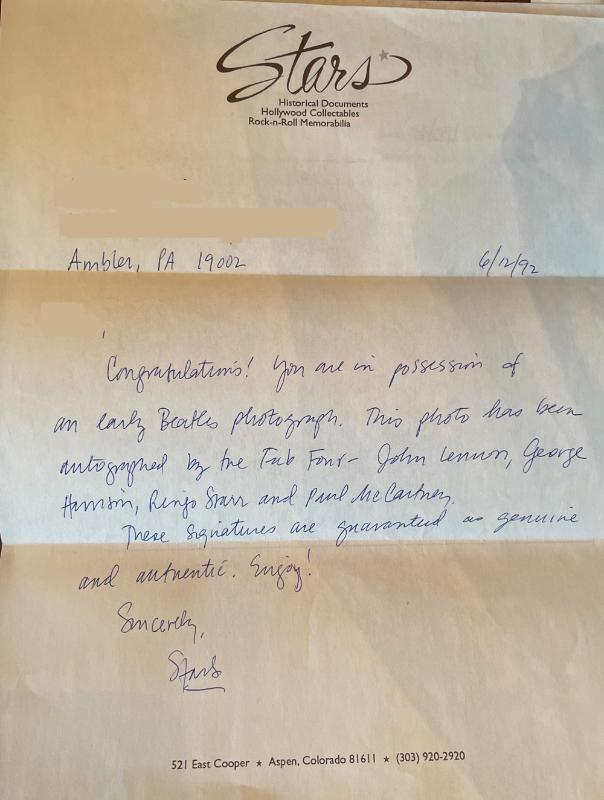 Stars
Historical Documents
Hollywood Collectables
Rock-n-Roll Memorabilia
Ambler, PA 19002
6/12/92
Congratulations! You are in possession of
an early Beatles photograph. This photo has been
autographed by the Fab Four- John Lennon, George
Harrison, Ringo Starr and Paul McCartney.
These signatures are guaranteed as genuine
and authentic. Enjoy!
Sincerely,
Stars
521 East Cooper ★ Aspen, Colorado 81611 ★ (303) 920-2920